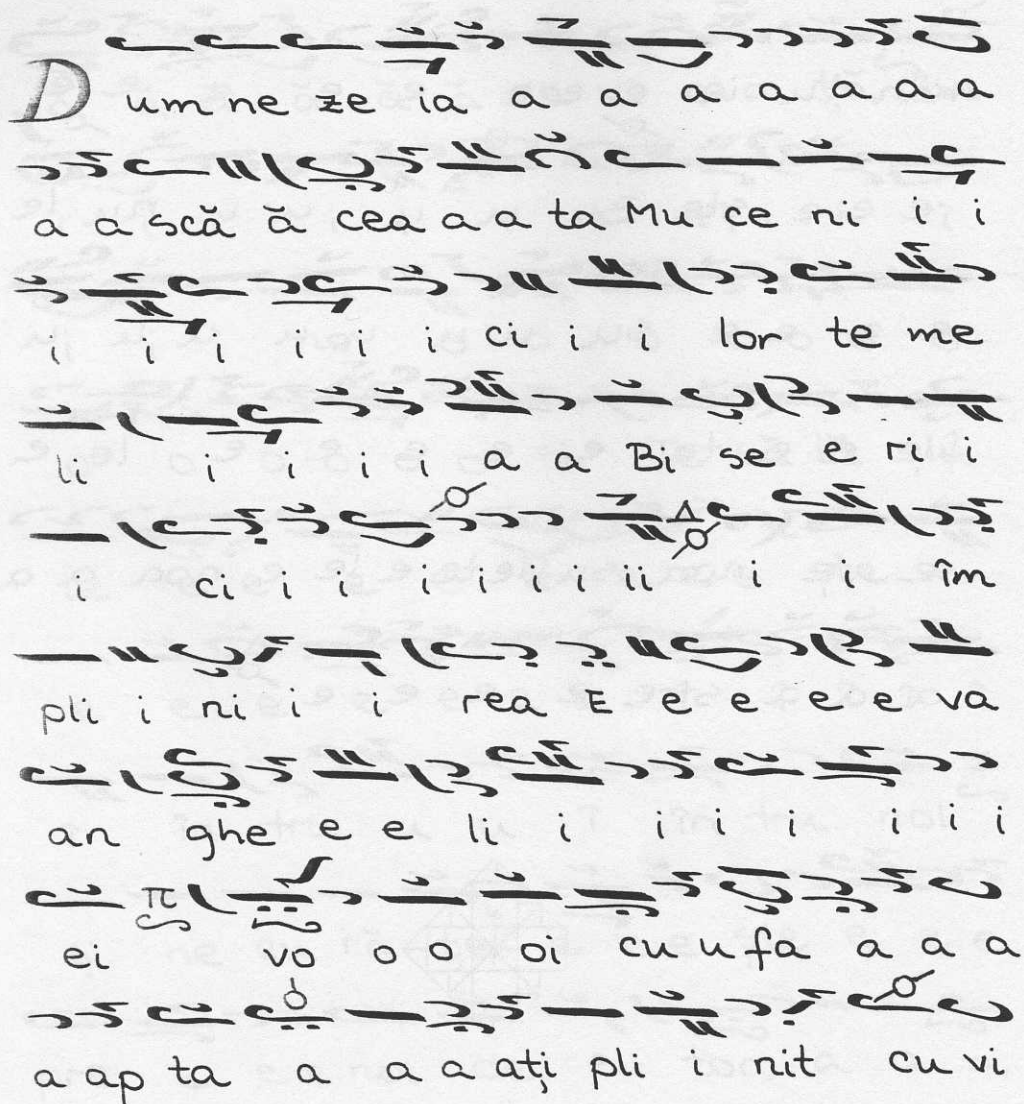 Dum ne ze ia a a a a a a a
a a scă ă cea a a ta Mu ce ni i i
i i i i i i ci i i lor te me
li i i i i a a Bi se e ri i
i ci i i i i i ii i i îm
pli i ni i i rea E e e e e va
an ghe e e li i i i i i i i
ei π vo o o oi cu u fa a a a
a ap ta a a a ați pli i nit cu vi